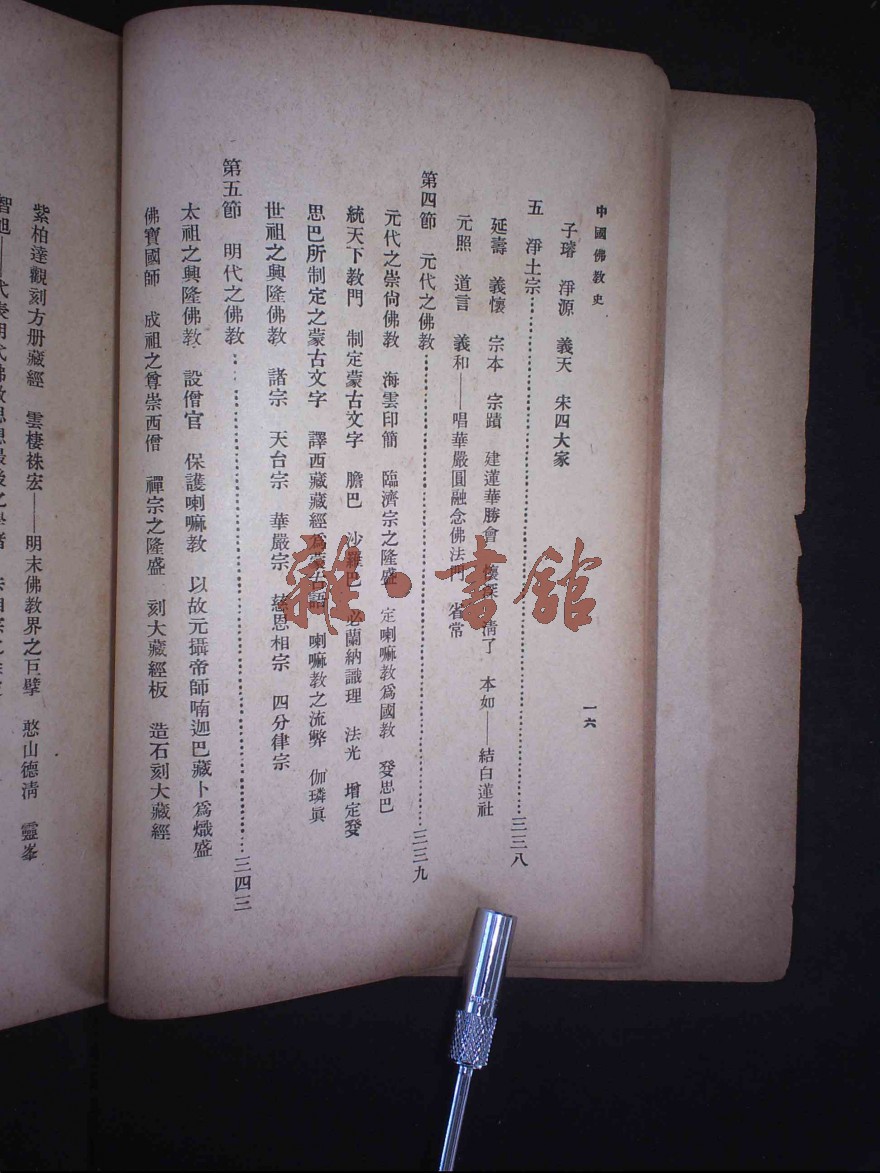 中國佛教史
一六
子璿 淨源 義天 宋四大家
五 淨土宗……三三八
延壽 義懷 宗本 宗賾 建蓮華勝會 懷深 淸了 本如——結白蓮社
元照 道言 義和——唱華嚴圓融念佛法門 省常
第四節 元代之佛教……三三九
元代之崇尙佛教 海雲印簡 臨濟宗之隆盛 定喇嘛教爲國教 發思巴
統天下教門 制定蒙古文字 膽巴 沙羅巴 必蘭納識理 法光 增定發
思巴所制定之蒙古文字 譯西藏藏經爲蒙古語 喇嘛教之流弊 伽璘眞
世祖之興隆佛教 諸宗 天台宗 華嚴宗 慈恩相宗 四分律宗
第五節 明代之佛教……三四三
太祖之興隆佛教 設僧官 保護喇嘛教 以故元攝帝師喃迦巴藏卜爲熾盛
佛寶國師 成祖之尊崇西僧 禪宗之隆盛 刻大藏經板 造石刻大藏經
紫柏達觀刻方册藏經 雲棲袾宏——明末佛教界之巨擘 憨山德淸 靈峯
智旭——代表明代佛教思想最後之學者
雜·書館